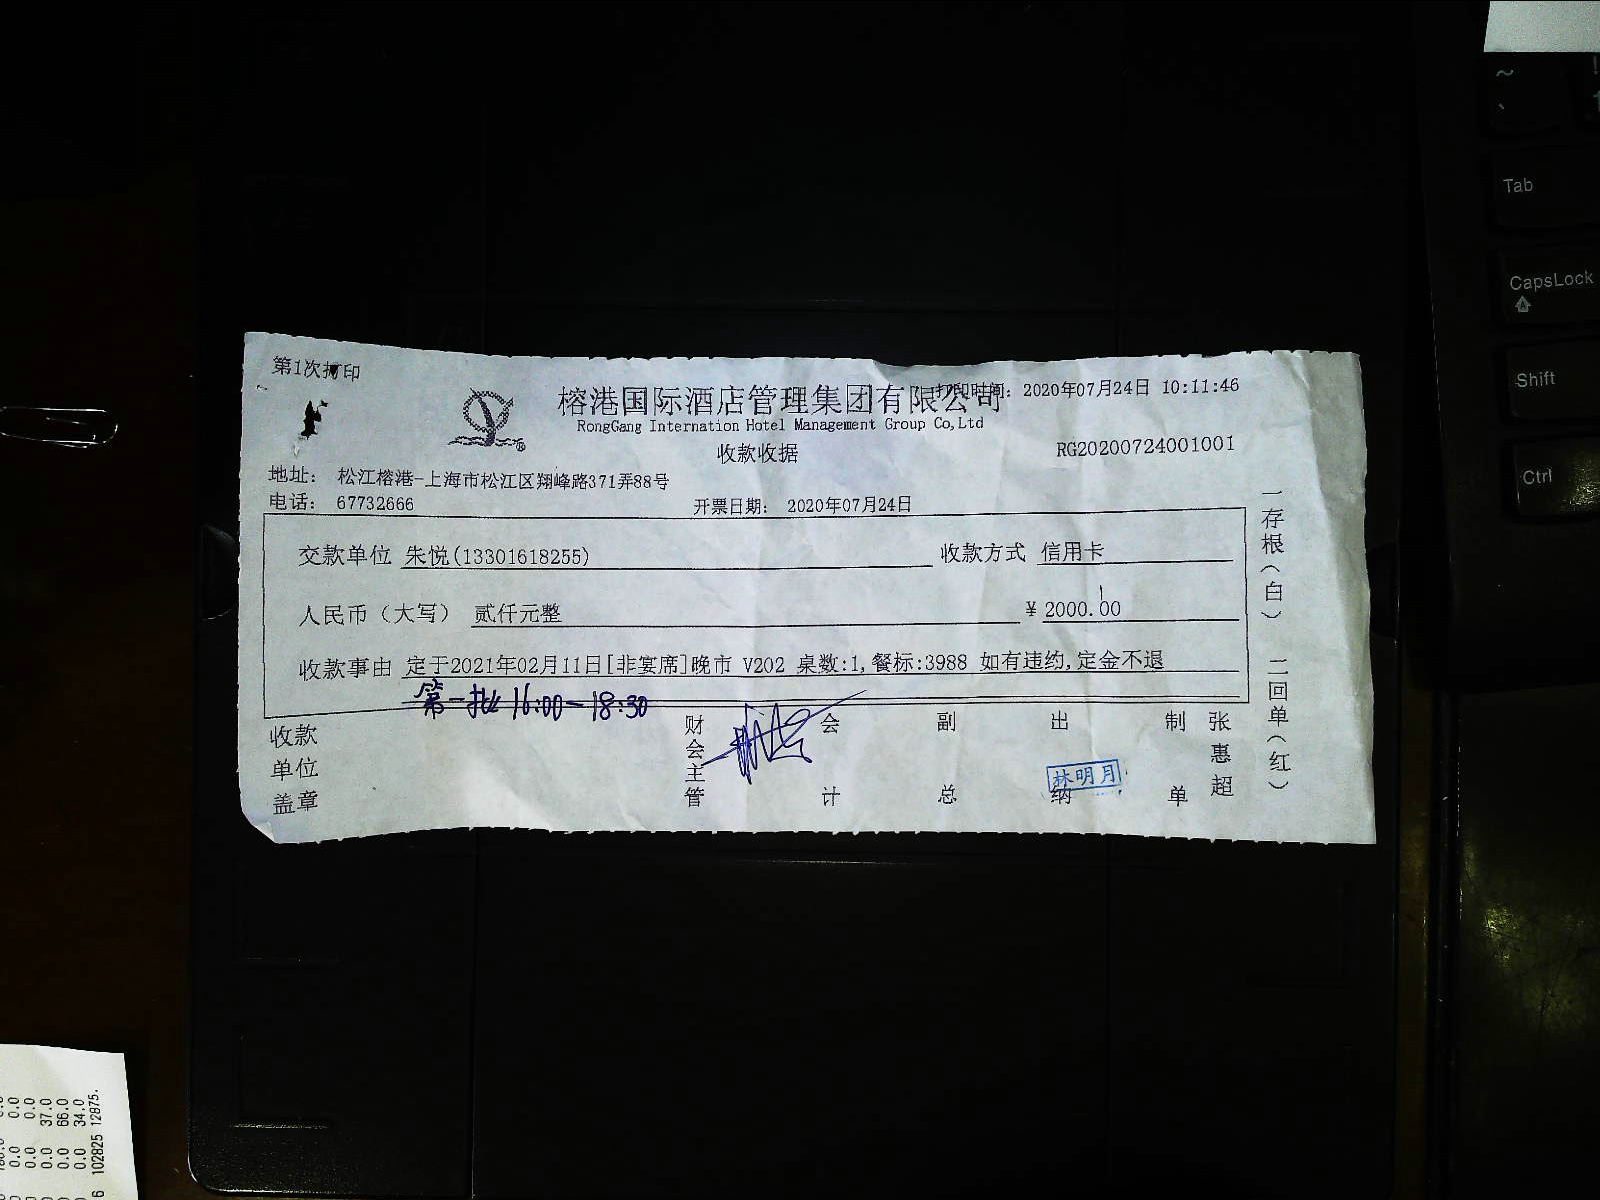 第1次打印
打印时间: 2020年07月24日 10:11:46
榕港国际酒店管理集团有限公司
RongGang Internation Hotel Management Group Co,Ltd
收款收据
RG20200724001001
地址: 松江榕港-上海市松江区翔峰路371弄88号
电话: 67732666
开票日期: 2020年07月24日
交款单位 朱悦(13301618255) 收款方式 信用卡
人民币（大写） 贰仟元整 ¥ 2000.00
收款事由 定于2021年02月11日[非宴席]晚市 V202 桌数:1,餐标:3988 如有违约,定金不退
第一批 16:00-18:30
收款单位盖章
财会主管
会计
副总
出纳
林明月
制单
张惠超
一存根（白） 二回单（红）
~
Tab
CapsLock
Shift
Ctrl
0.0 0.0
0.0 0.0
0.0 37.0
0.0 66.0
0.0 34.0
102825 12875.